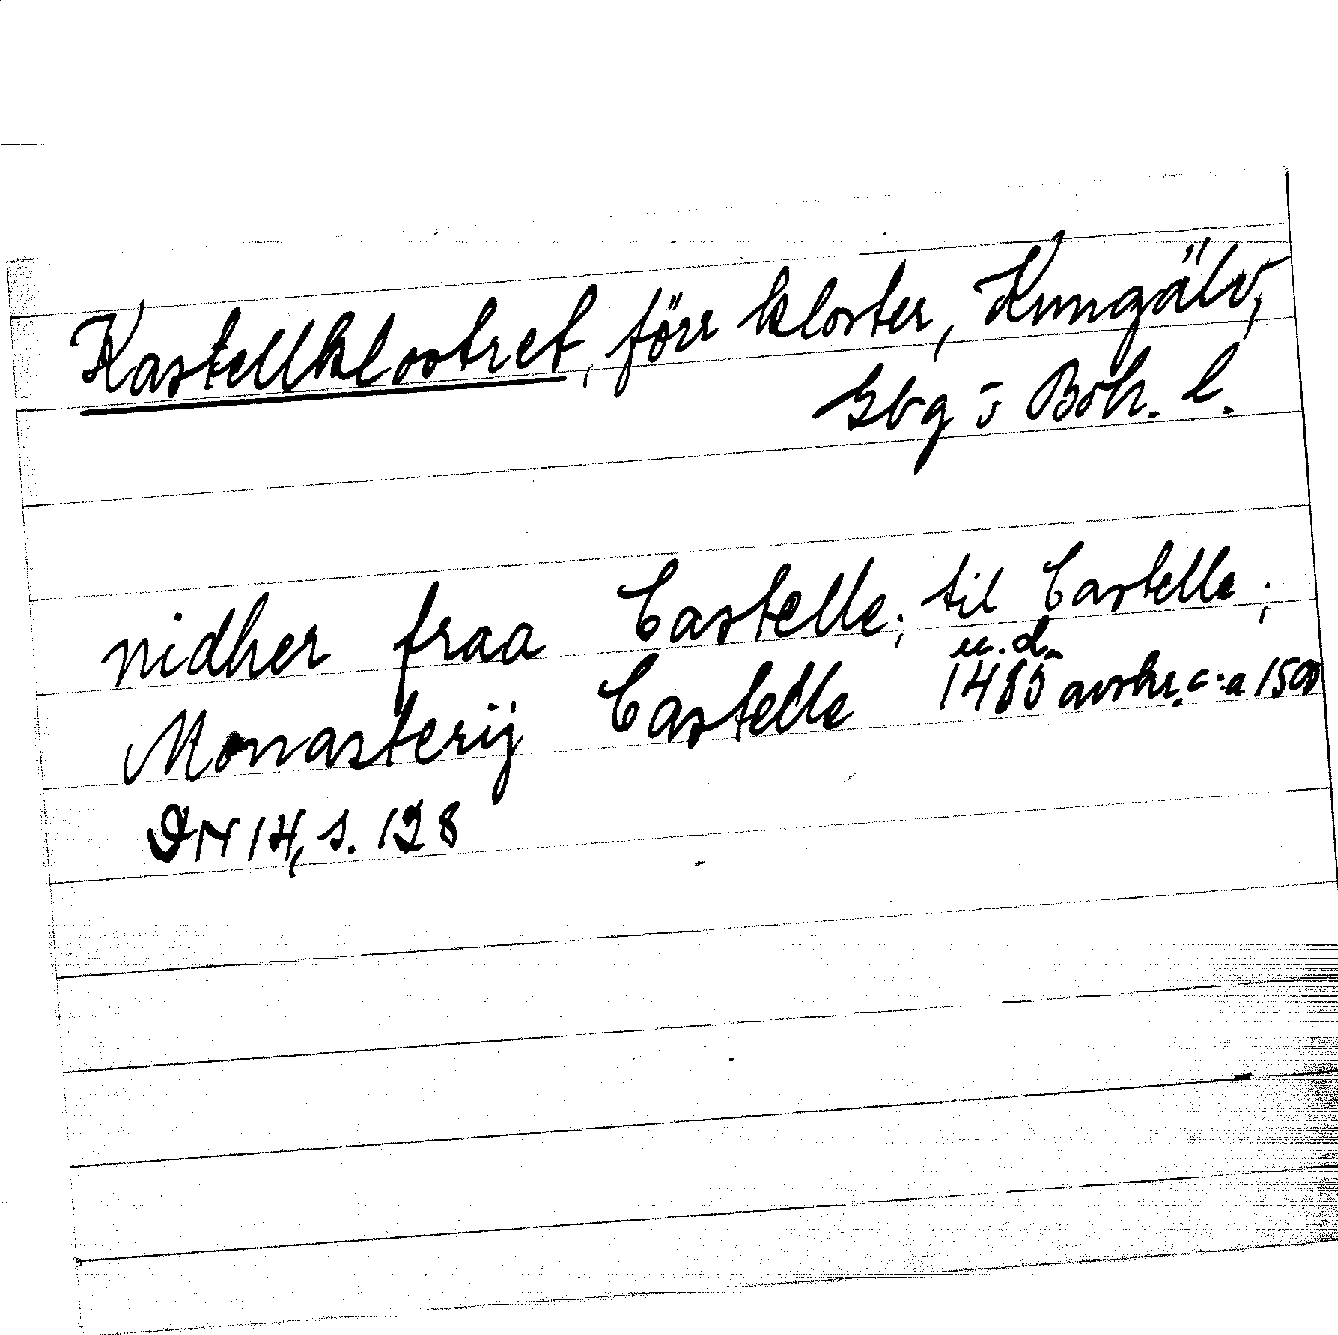 Kastellklostret, förr kloster, Kungälv,
Gbg o Boh. l.
nidher fraa Castelle; til Castelle;
u. d.
Monasterij Castelle 1485 avskr. c:a 1500
DN 14, s. 128